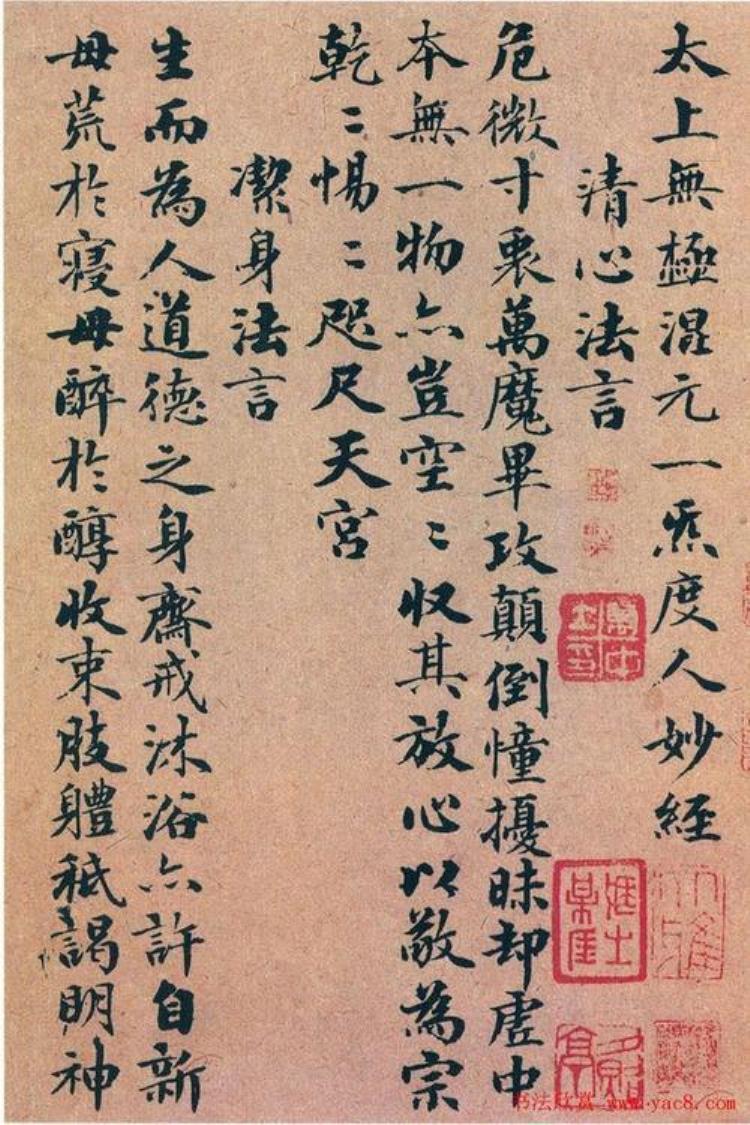 太上無極混元一炁度人妙経
清心法言
危微寸衷萬魔畢攻顛倒憧擾昧却虛中
本無一物亦豈空〻収其放心以敬為宗
乾〻惕〻咫尺天宮
潔身法言
生而為人道德之身齋戒沐浴亦許自新
毋荒於寝毋醉於醇收束肢體祗謁明神
书法欣赏 www.yac8.com